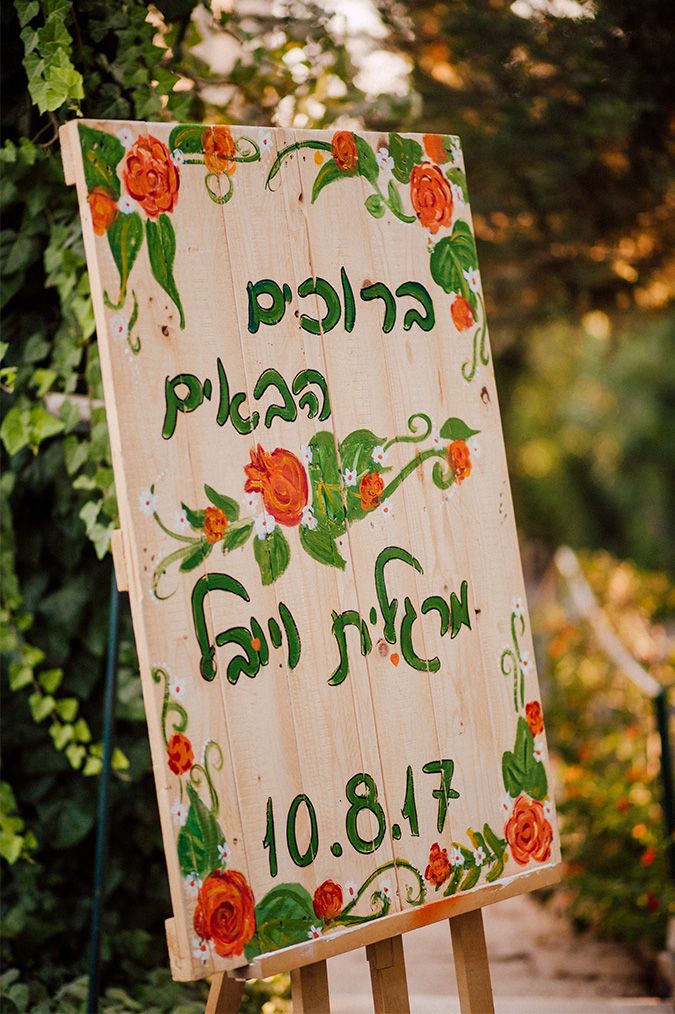 ברוכים
הבאים
מרגלית ויובל
10.8.17